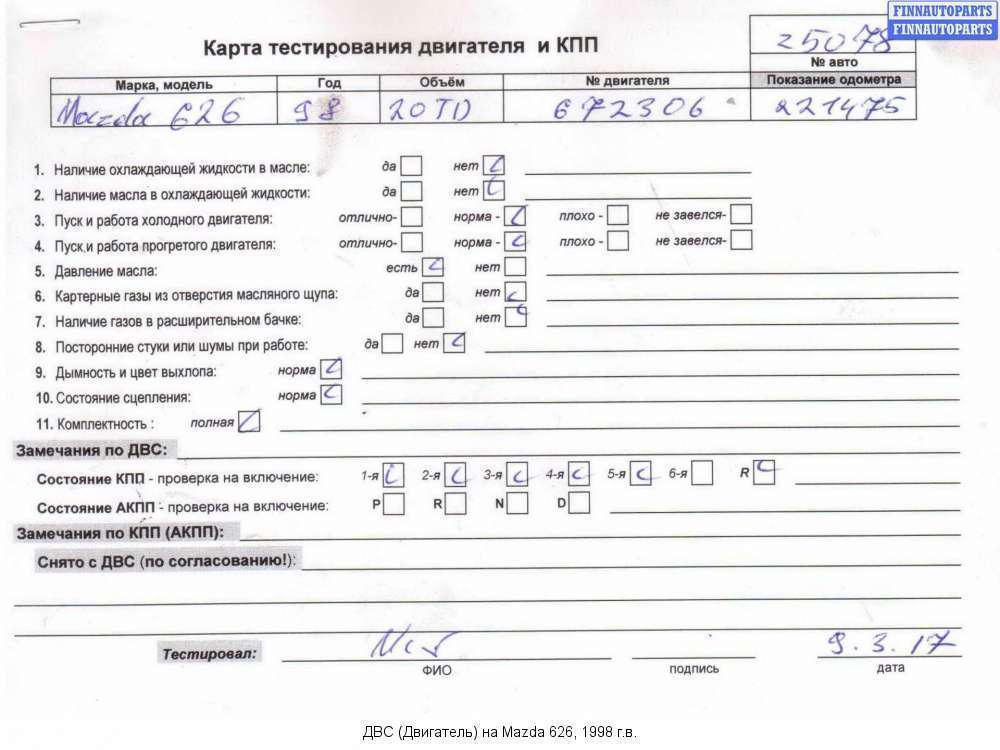 FINNAUTOPARTS
FINNAUTOPARTS
Карта тестирования двигателя и КПП
25078
№ авто
Марка, модель Год Объём № двигателя Показание одометра
Mazda 626 98 20TD 672306 221475
1. Наличие охлаждающей жидкости в масле: да нет
2. Наличие масла в охлаждающей жидкости: да нет
3. Пуск и работа холодного двигателя: отлично- норма - плохо - не завелся-
4. Пуск и работа прогретого двигателя: отлично- норма - плохо - не завелся-
5. Давление масла: есть нет
6. Картерные газы из отверстия масляного щупа: да нет
7. Наличие газов в расширительном бачке: да нет
8. Посторонние стуки или шумы при работе: да нет
9. Дымность и цвет выхлопа: норма
10. Состояние сцепления: норма
11. Комплектность : полная
Замечания по ДВС:
Состояние КПП - проверка на включение: 1-я 2-я 3-я 4-я 5-я 6-я R
Состояние АКПП - проверка на включение: P R N D
Замечания по КПП (АКПП):
Снято с ДВС (по согласованию!):
Тестировал: 9.3.17
ФИО подпись дата
ДВС (Двигатель) на Mazda 626, 1998 г.в.